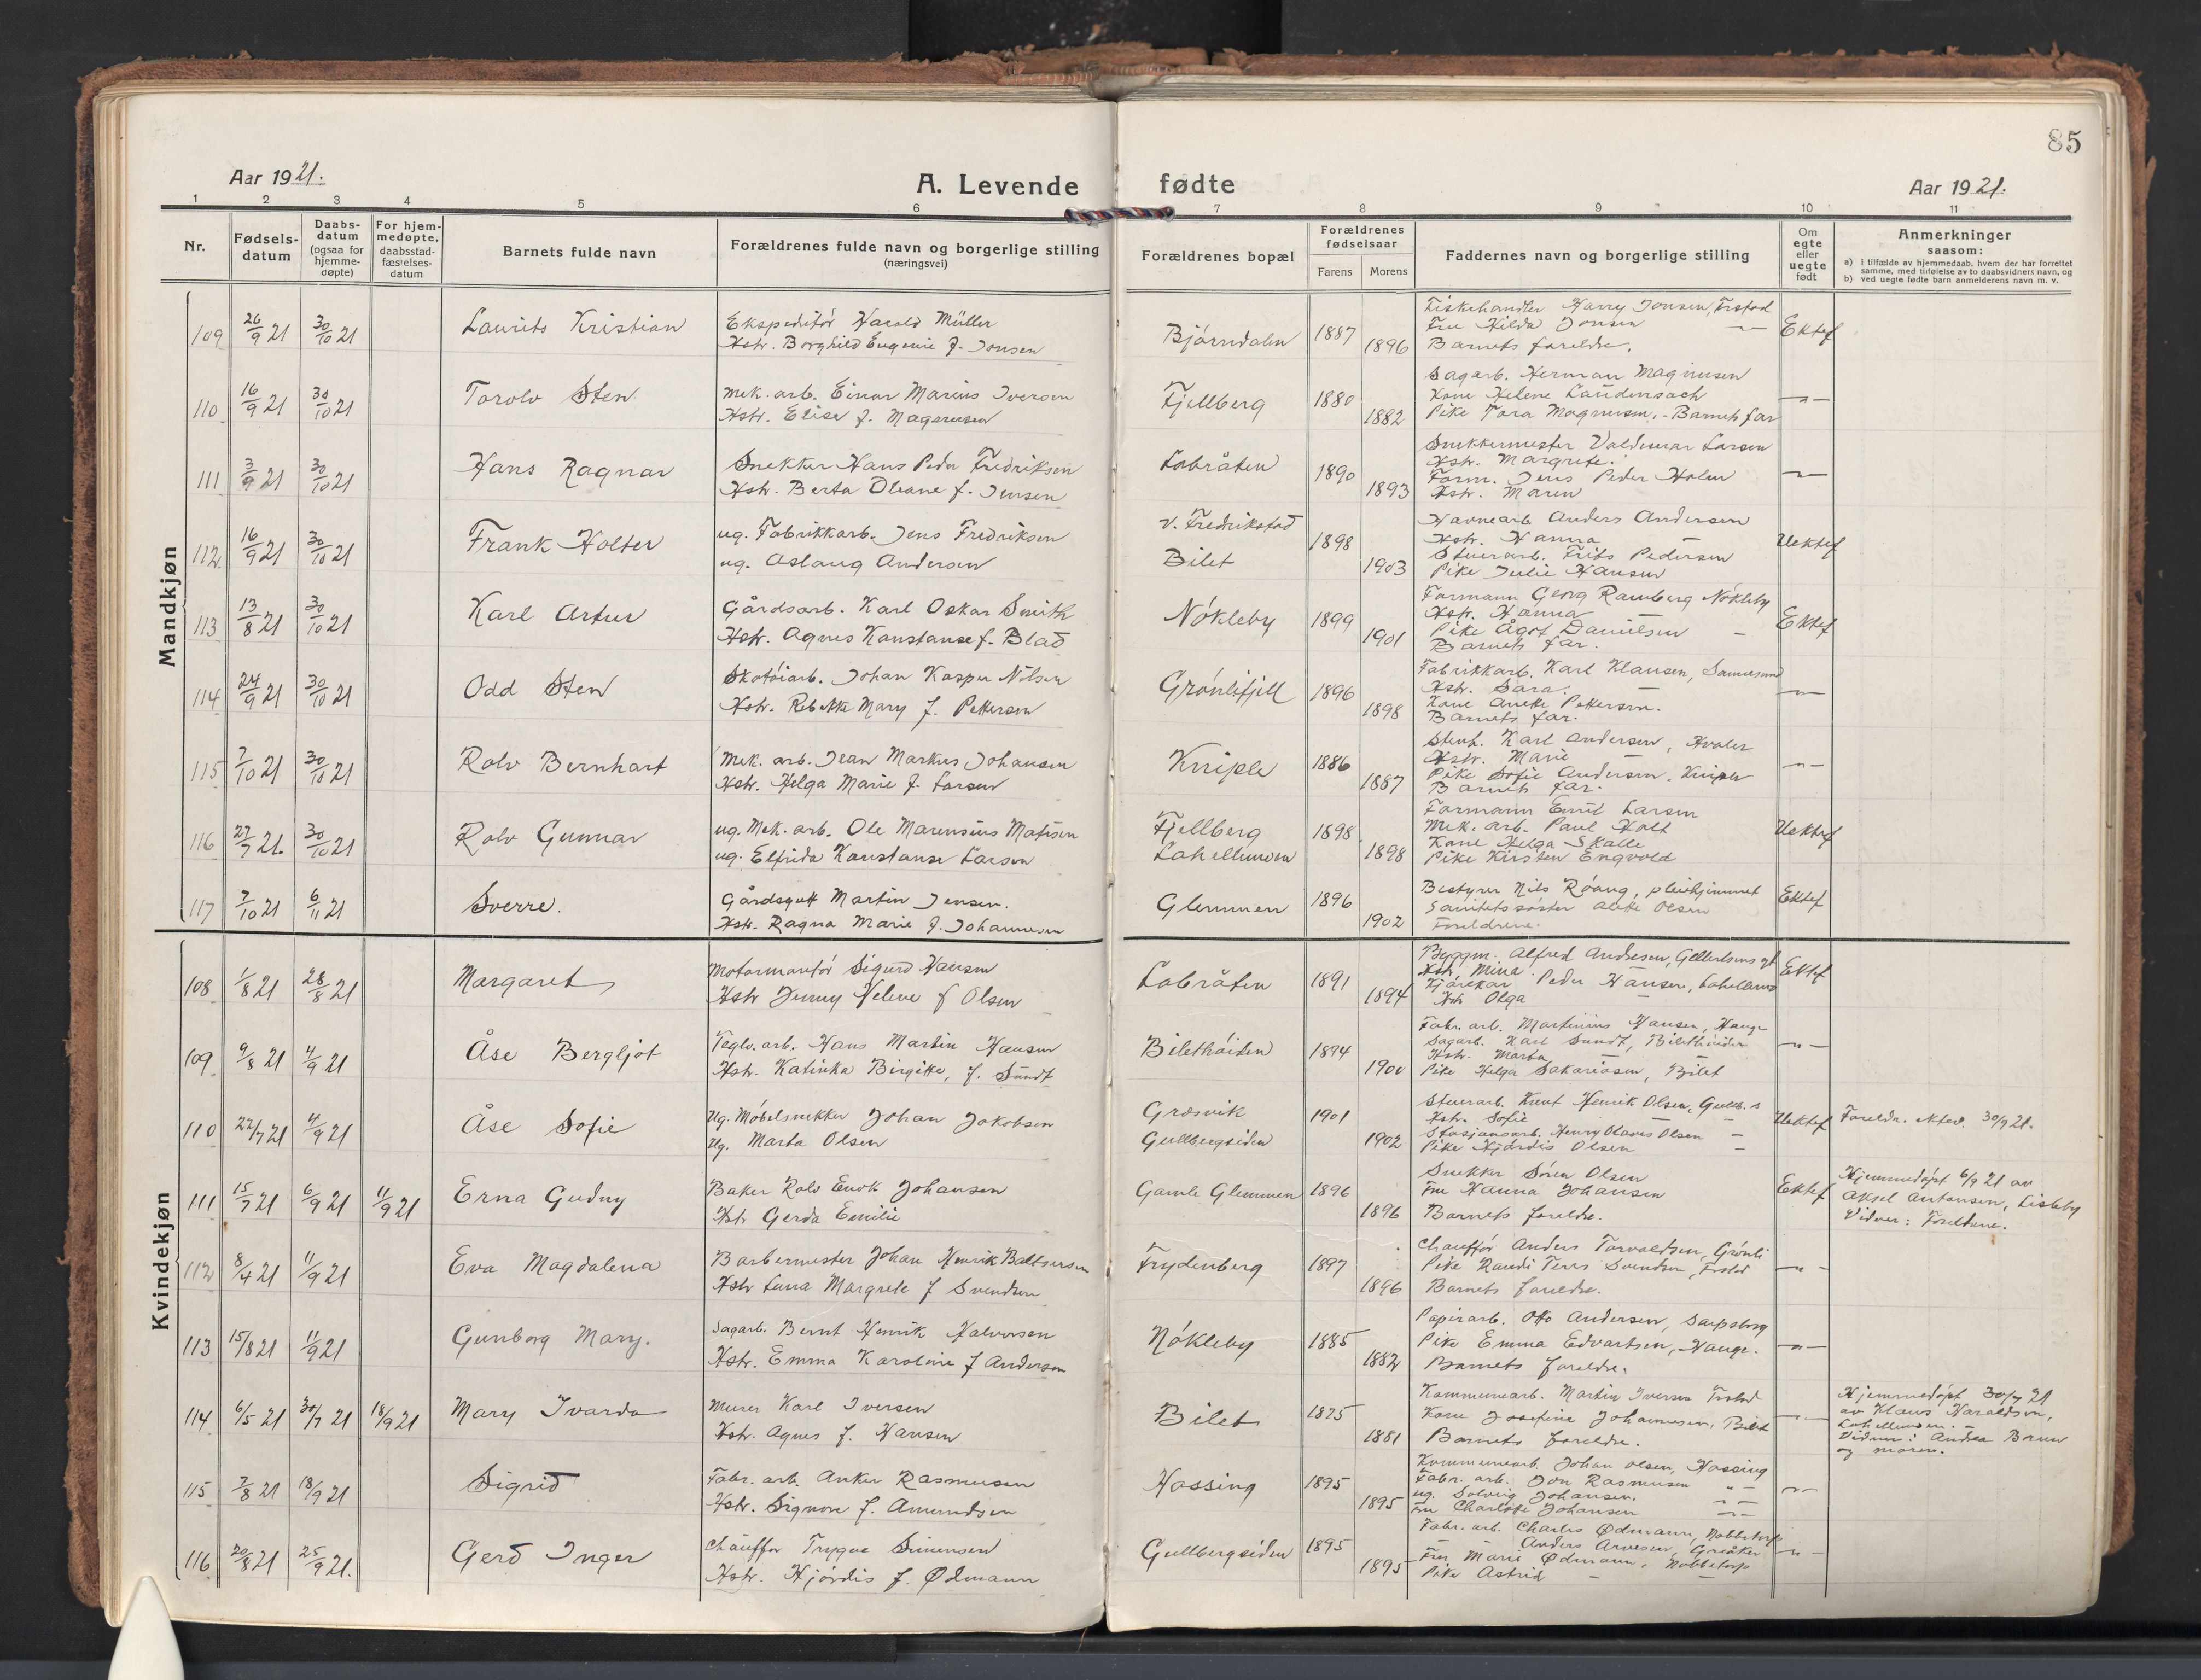 85
Aar 1921.
A. Levende fødte
Aar 1921.
1 2 3 4 5 6 7 8 9 10 11
Nr.
Fødsels-
datum
Daabs-
datum
(ogsaa for
hjemme-
døpte)
For hjem-
medøpte,
daabsstad-
fæstelses-
datum
Barnets fulde navn
Forældrenes fulde navn og borgerlige stilling
(næringsvei)
Forældrenes bopæl
Forældrenes
fødselsaar
Farens Morens
Faddernes navn og borgerlige stilling
Om
egte
eller
uegte
født
Anmerkninger
saasom:
a) i tilfælde av hjemmedaab, hvem der har forrettet
samme, med tilføielse av to daabsvidners navn, og
b) ved uegte fødte barn anmelderens navn m. v.
Mandkjøn
109 26/9 21 30/10 21 Laurits Kristian
Ekspeditør Harald Müller
Hstr. Borghild Eugenie f. Jonsen
Bjørndalen 1887 1896
Fiskehandler Harry Jonsen, Frstad
Fru Hilda Jonsen
Barnets foreldre.
Ektef
110 16/9 21 30/10 21 Torolv Sten
Mek. arb. Einar Marius Iversen
Hstr. Elise f. Magnusen
Fjellberg 1880 1882
Sagarb. Herman Magnusen
Kone Helene
Pike Tora Magnusen, - Barnets far
— " —
111 3/9 21 30/10 21 Hans Ragnar
Snekker Hans Peder Fredriksen
Hstr. Berta Oleane f. Jensen
Labråten 1890 1893
Snekkermester Valdemar Larsen
Hstr. Margrete.
Form. Jens Peder Holm
Hstr. Maren
— " —
112 16/9 21 30/10 21 Frank Holter
ug. Fabrikkarb. Jens Fredriksen
ug. Aslaug Andersen
v. Fredrikstad
Bilet
1898 1903
Havnearb Anders Andersen
Hstr. Hanna
Stuerarb. Frits Pedersen
Pike Julie Hansen
Uektef
113 13/8 21 30/10 21 Karl Artur
Gårdsarb. Karl Oskar Smith
Hstr. Agnes Konstanse f. Blad
Nøkleby 1899 1901
Formann Georg Ramberg Nøkleby
Hstr. Hanna
Pike Ågot Danielsen
Barnets far.
Ektef
114 24/9 21 30/10 21 Odd Sten
Skotøiarb. Johan Kasper Nilsen
Hstr. Rebekka Mary f. Pettersen
Grønlifjell 1896 1898
Fabrikkarb. Karl Klausen,
Hstr. Sara.
Kone Anette Pettersen.
Barnets far.
— " —
115 7/10 21 30/10 21 Rolv Bernhart
Mek. arb. Jean Markus Johansen
Hstr. Helga Marie f. Larsen
Kniple 1886 1887
Stenh. Karl Andersen, Hvaler
Hstr. Marie
Pike Sofie Andersen, Kniple
Barnets far.
— " —
116 27/7 21. 30/10 21 Rolv Gunnar
ug. Mek. arb. Ole Marensius Matisen
ug. Elfrida Konstanse Larsen
Fjellberg
Lahellmoen
1898 1898
Formann Emil Larsen
Mek. arb. Paul Holt
Kone Helga Skalle
Pike Kirsten Engvold
Uektef
117 7/10 21 6/11 21 Sverre.
Gårdsgutt Martin Jensen.
Hstr. Ragna Marie f. Johannesen
Glemmen 1896 1902
Bestyrer Nils Røang, pleiehjemmet
Sanitetssøster Olsen
Foreldrene.
Ektef
Kvindekjøn
108 1/8 21 28/8 21 Margaret
Motormontør Sigurd Hansen
Hstr Jenny Helene f Olsen
Labråten 1891 1894
Byggm. Alfred Andresen,
Hstr. Mina.
Kjørekar Peder Hansen,
Hstr Olga
Ektef
109 9/8 21 4/9 21 Åse Bergljot
Teglv. arb. Hans Martin Hansen
Hstr. Katinka Birgitte, f. Sundt
Bilethøiden 1894 1900
Fabr. arb. Martinius Hansen, Hauge
Sagarb. Karl Sundt, Bilethøiden
Hstr. Marta
Pike Helga Sakariasen, Bilet
— " —
110 22/7 21 4/9 21 Åse Sofie
Ug. Møbelsnekker Johan Jakobsen
Ug. Marta Olsen
Gresvik
Gullbergsiden
1901 1902
Stuerarb. Knut Henrik Olsen, Gullb. s
Hstr. Sofie
Stasjonsarb. Henry Olaves Olsen
Pike Hjørdis Olsen
Uektef Foreldr. ektev. 30/9 21.
111 15/7 21 6/9 21 11/9 21 Erna Gudny
Baker Rolv Enok Johansen
Hstr Gerda Emilie
Gamle Glemmen 1896 1896
Snekker Søren Olsen
Fru Hanna Johansen
Barnets foreldre.
Ektef
Hjemmedøpt 6/9 21 av
Aksel Antonsen, Lisleby
Vidner: Foreldrene.
112 8/4 21 11/9 21 Eva Magdalena
Barbermester Johan Henrik Baltsersen
Hstr Luna Margrete f Svendsen
Frydenberg 1897 1896
Chauffør Anders Torvaldsen, Grønli
Pike Randi Svendsen, Frstad
Barnets foreldre.
— " —
113 15/8 21 11/9 21 Gunborg Mary.
Sagarb. Bernt Henrik Halvorsen
Hstr. Emma Karoline f Andersen
Nøkleby 1885 1882
Papirarb. Otto Andersen, Sarpsborg
Pike Emma Edvartsen, Hauge.
Barnets foreldre.
— " —
114 6/5 21 30/7 21 18/9 21 Mary Ivarda
Murer Karl Iversen
Hstr. Agnes f. Hansen
Bilet 1875 1881
Kommunearb. Martin Iversen Frstad
Kone Josefine Johannesen, Bilet
Barnets foreldre.
— " —
Hjemmedøpt 30/7 21
av Klaus Haraldsen,
Lahellmoen.
Vidner: Andrea Brun
og moren.
115 7/8 21 18/9 21 Sigrid
Fabr. arb. Anker Rasmusen
Hstr. Signora f. Amundsen
Hassing 1895 1895
Kommunearb. Johan Olsen, Hassing
Fabr. arb. Jon Rasmusen
ug. Solveig Johansen.
Fru Charlotte Johansen
— " —
116 20/8 21 25/9 21. Gerd Inger
Chauffør Trygve Simensen
Hstr. Hjørdis f. Ødmann
Gullbergsiden 1895 1895
Fabr. arb. Charles Ødmann, Nabbetorp
— Anders Arvesen, Greåker
Fru Marie Ødmann, Nabbetorp
Pike Astrid — —
— " —